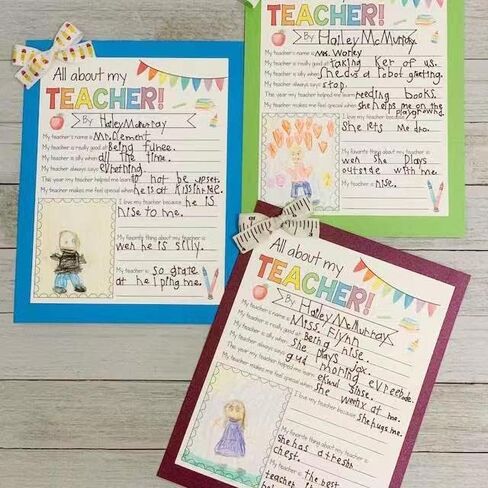 All about my
TEACHER!
By Hailey Mcmurray
My teacher's name is Mr. Dement.
My teacher is really good at Being funee.
My teacher is silly when all the time.
My teacher always says evrhthing.
The year my teacher helped me learn to not be upset.
My teacher makes me feel special when he is at kissing me.
I love my teacher because he is
nise to me.
My favorite thing about my teacher is
wen he is silly.
My teacher is so grate
at helping me.
TEACHER!
By Hailey McMurray
My teacher's name is Ms. Worley
My teacher is really good at taking ker of us.
My teacher is silly when she des a robot greeting.
My teacher always says stop.
The year my teacher helped me learn reeding books.
My teacher makes me feel special when she helps me on the
playground.
I love my teacher because
she lets me dro.
My favorite thing about my teacher is
wen she plays
outside with me.
My teacher is nise.
All about my
TEACHER!
By Hailey McMurray
My teacher's name is Miss. Flynn
My teacher is really good at Being nise.
My teacher is silly when she plays jox.
My teacher always says gud morning evreebode.
The year my teacher helped me learn
My teacher makes me feel special when she at me.
I love my teacher because she hugs me.
My favorite thing about my teacher is
she has a
chest.
My teacher is the best
teacher